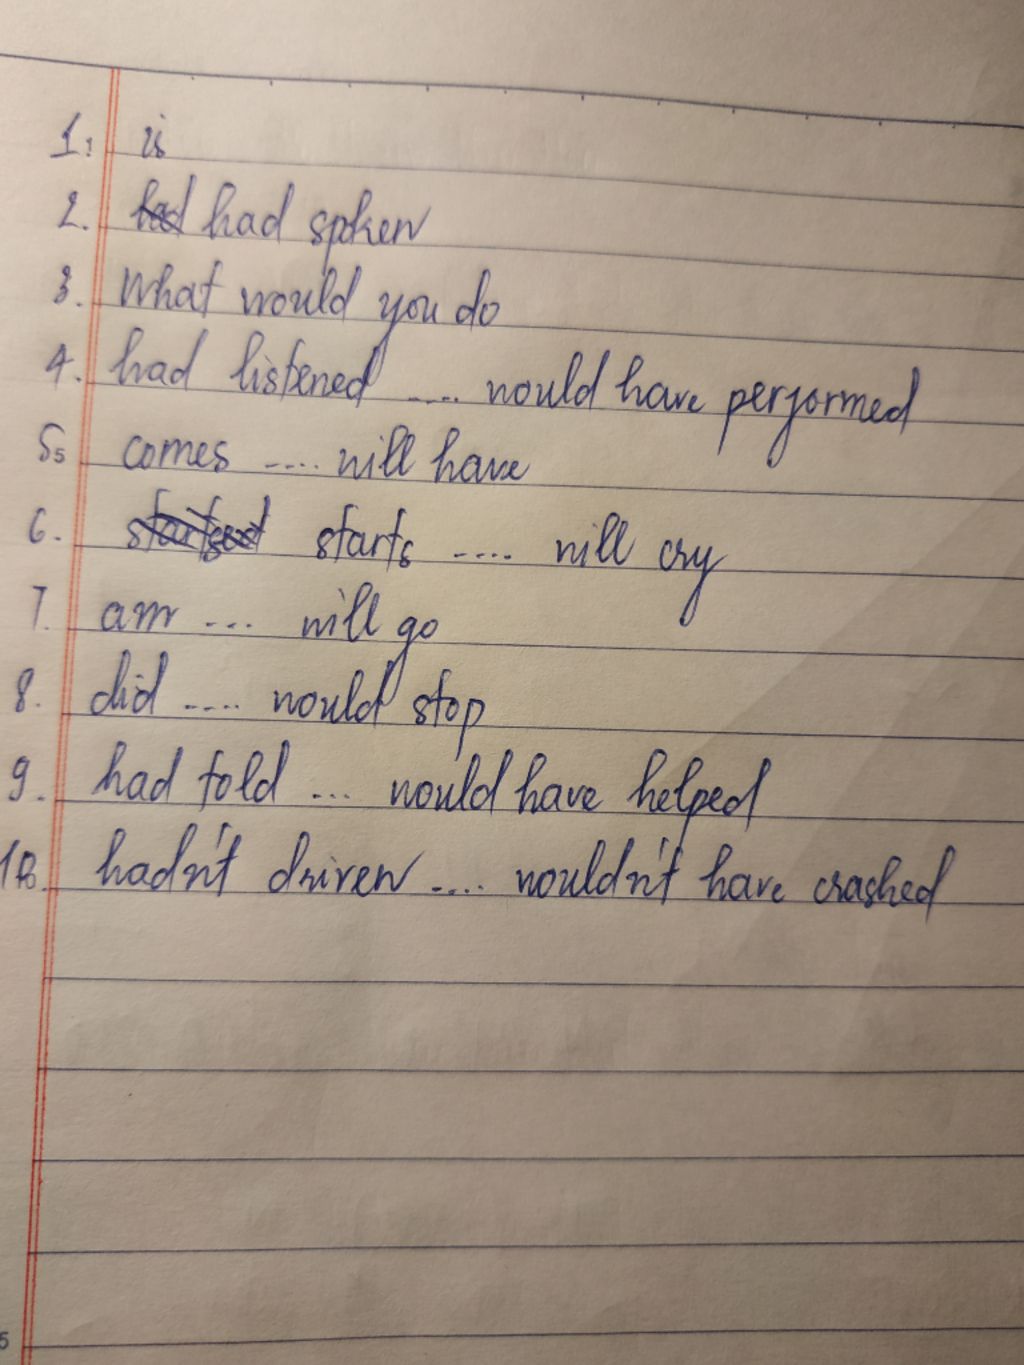 1. is
2. had had spoken
3. What would you do
4. had listened .... would have performed
5. comes .... will have
6. started starts .... will cry
7. am ... will go
8. did .... would stop
9. had told ... would have helped
10. hadn't driven .... wouldn't have crashed
5